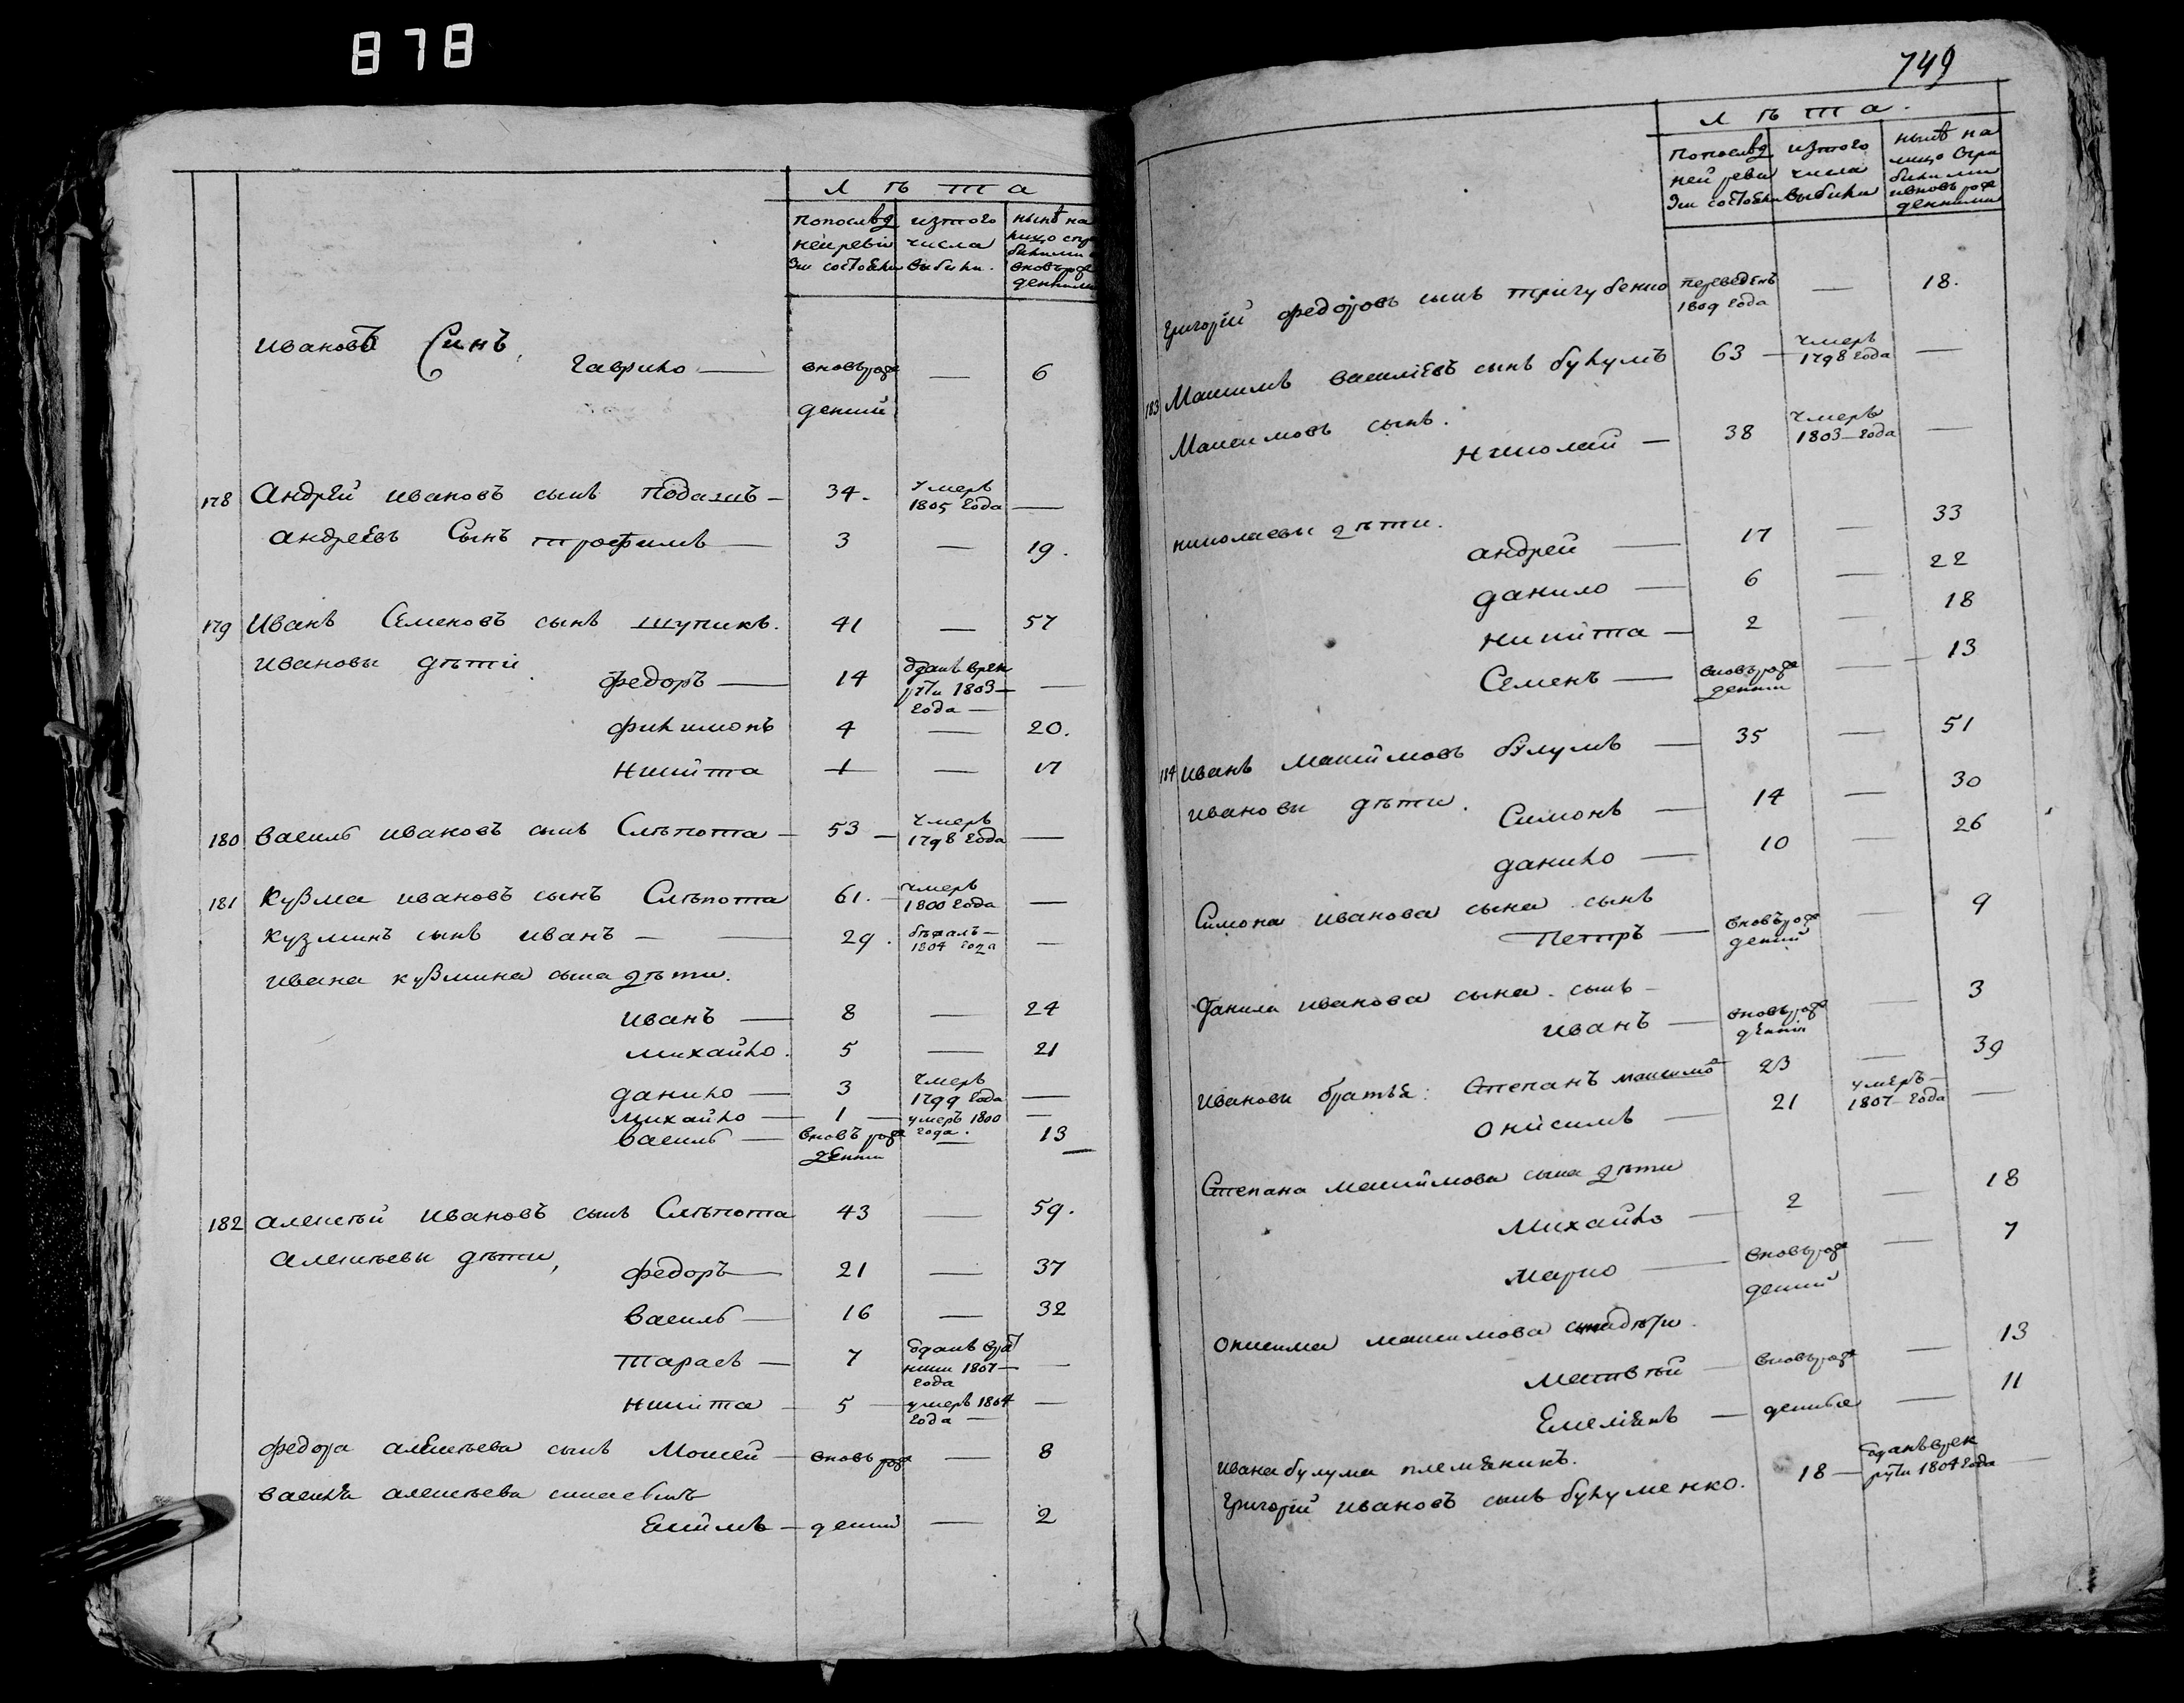 878
лѣта
попослѣд изтого нынѣ на
ней ревизіи числа лицо
состояло выбыли.
вновьрож
денными
Ивановъ Синъ,
Гаврило — вновьрож — 6
денній
178 Андрей Ивановъ сынъ — 34. Умеръ 1805 года —
Андреевъ Сынъ Трофимъ — 3 — 19.
179 Иванъ Семеновъ сынъ Шупикъ. 41 — 57
Ивановы дѣти.
Федоръ — 14 отданъ врек руты 1803 — года — —
Филимонъ 4 — 20.
Никита 1 — 17
180 Василь Ивановъ сынъ Слѣпота — 53 — Умеръ 1798 года —
181 Кузма Ивановъ сынъ Слѣпота 61. — Умеръ 1800 года —
Кузминъ сынъ Иванъ — — 29. бѣжалъ — 1804 года —
Ивана Кузмина сына дѣти.
Иванъ — 8 — 24
Михайло. 5 — 21
Данило — 3 Умеръ 1799 года —
Михайло — 1 — умеръ 1800 года. —
Василь — вновь рож денни — 13
182 Алексѣй Ивановъ сынъ Слѣпота 43 — 59.
Алексѣевы дѣти,
Федоръ — 21 — 37
Василь — 16 — 32
Тарасъ — 7 отданъ 1807 — года —
Никита — 5 — умеръ 1804 года — —
Федора Алексѣева сынъ Мойсей — вновь рож — 8
Василя Алексѣева сина синъ
Екимъ — денній — 2
749
лѣта.
попослѣд изтого нынѣ на
ней реви числа лицо
зіи состояли выбыли
ивновь рож
денными
Григорій Федоровъ сынъ Тригубенко переведенъ 1809 года — 18.
183 Максимъ Василіевъ сынъ Булумъ 63 — Умеръ 1798 года —
Максимовъ сынъ.
Николай — 38 Умеръ 1803 — года —
Николаевы дѣти.
Андрей — 17 — 33
Данило — 6 — 22
Никита — 2 — 18
Семенъ — вновьрож денни — 13
184 Иванъ Максимовъ Булумъ — 35 — 51
Ивановы дѣти.
Симонъ — 14 — 30
Данило — 10 — 26
Симона Иванова сына сынъ
Петръ — вновьрож денній — 9
Данила Иванова сына сынъ —
Иванъ — вновьрож денній — 3
Ивановы братья: Степанъ Максимо 23 — 39
Онисимъ — 21 умеръ — 1807 — года —
Степана Максимова сына дѣти
Михайло — 2 — 18
Марко — вновьрож денній — 7
Онисима Максимова сына дѣти.
Матвѣй — вновьрож — 13
Емеліянъ — денные — 11
Ивана Булума племяникъ.
Григорій Ивановъ сынъ Булуменко. 18 — отданъ врек руты 1804 года —